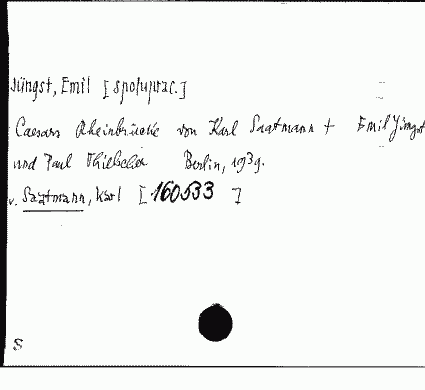 Jüngst, Emil [spoluprac.]
Caesars Rheinbrücke von Karl Saatmann + Emil Jüngst
und Paul Thielscher Berlin, 1939.
v. Saatmann, Karl [160533]
S